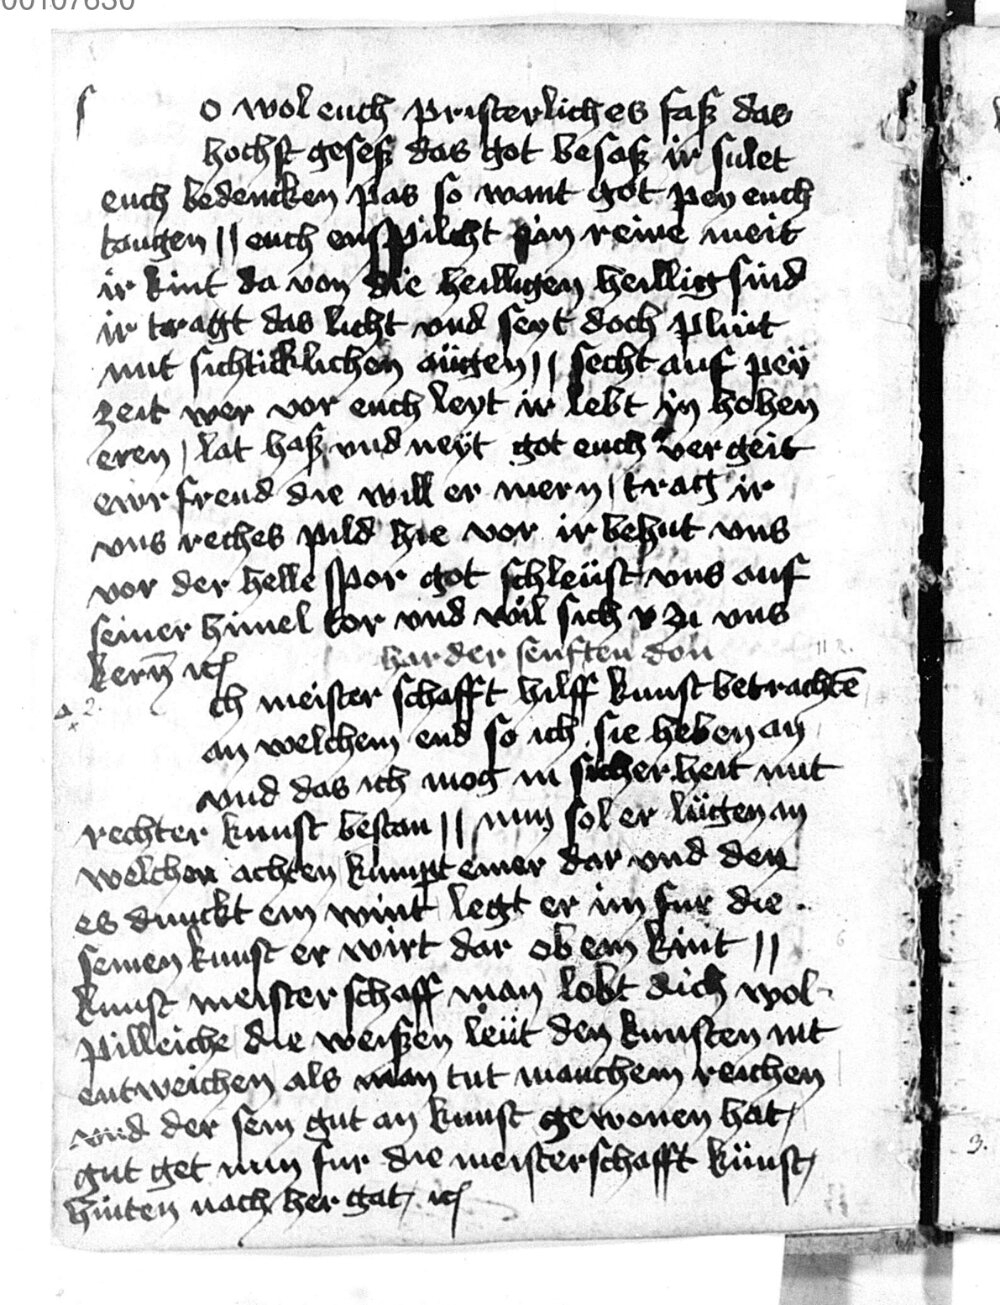 00107630
s o wol euch pristerliches faß das
hochst geseß das got besaß ir sulet
euch bedencken pas so want got pey euch
taugen || euch enspilcht ein reine meit
ir kint da von die heilligen heillig sind
ir tragt das licht vnd seyt doch plint
mit sichticklichen aügen || secht auf peÿ
zeit wer vor euch leyt ir lebt yn hohen
eren | lat haß vnd neÿt got euch ver geit
ewr freud die will er mern | trag ir
vns reches pild hie vor ir behut vns
vor der helle spor got schleüst vns auf
seiner himel tor vnd wil sich zu vns
kern̄ ꝛc
har der senften don
ch meister schafft hilff kunst betrachtē
an welchem end so ich sie heben an
vnd das ich mog in sicherheit mit
rechter kunst bestan || nun sol er lügen an
welchen achten kumpt einer dar vnd den
es dunckt ein wint legt er im fur die
seinen kunst er wirt dar ob ein kint ||
kunst meister schaff man lobt dich wol
pilleiche die weißen leüt den kunsten nit
entweichen als man tut manchem reichen
vnd der sein gut an kunst gewonen hat
gut get nun fur die meisterschafft künst
hinten nach her gat ꝛc
3.